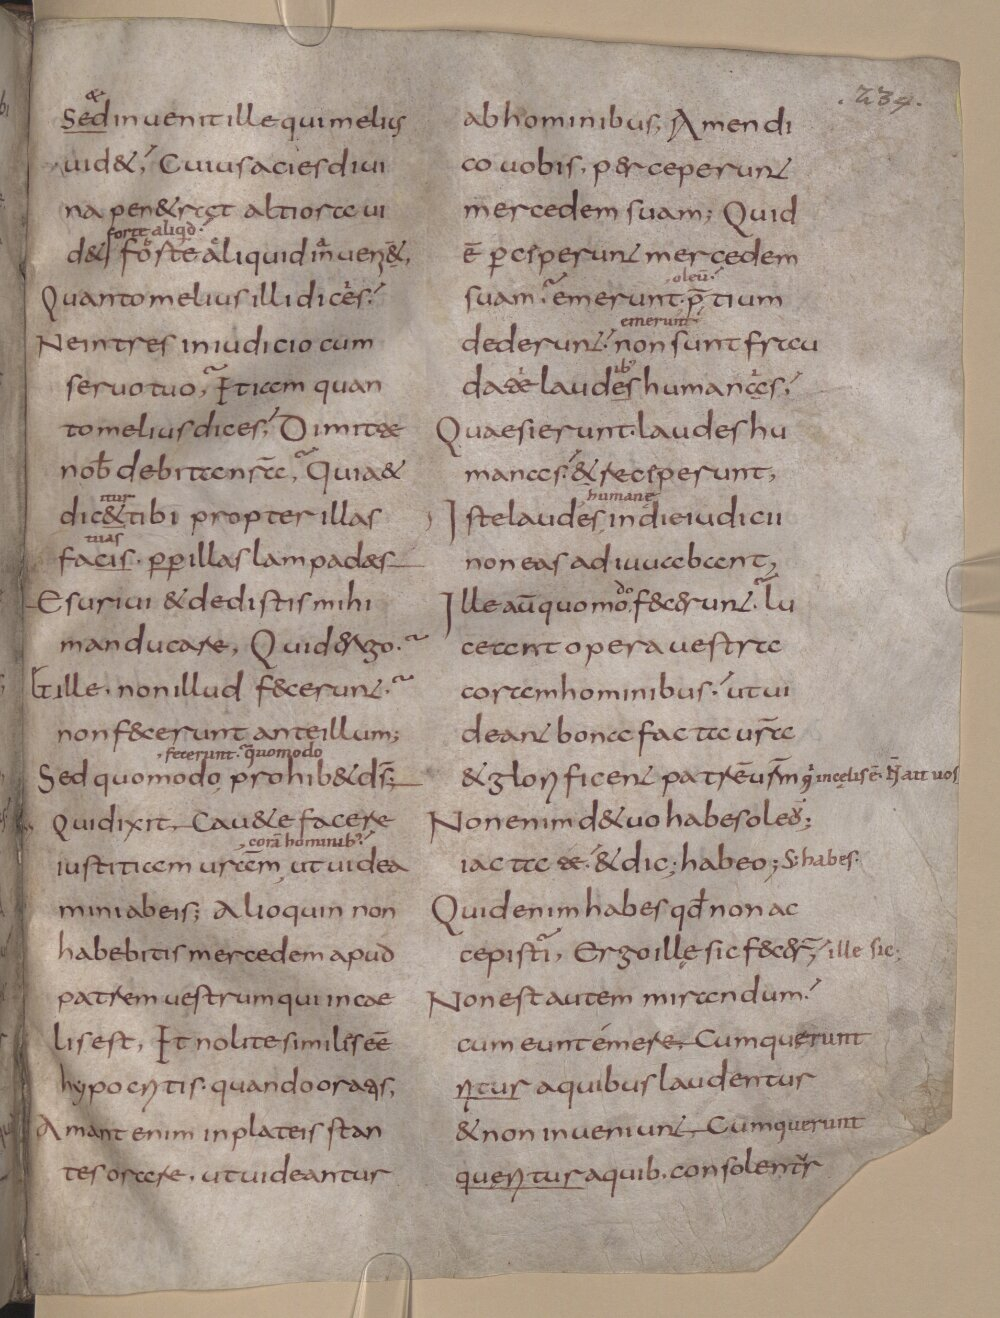 .234.
&
Sed inuenit ille qui melius
uid&; Cuius acies diui
na pen&rat altiora ui
forte aliqd.
d& forste aliquid inuen&,
Quanto melius illi dices;
Ne intres in iudicio cum
seruo tuo, Etiam quan
to melius dices; Dimitte
nob debita nra, Quia &
itur
dic&tibi propter illas
tuas
facis. pp illas lampadas
Esuriui & dedistis mihi
manducare, Quid ergo.
Et ille. non illud fecerunt.
non fecerunt ante illum;
fecerunt. quomodo
Sed quomodo prohib& ds;
Quid dixit, Cau&e facere
corā hominib;
iustitiam uram, ut uidea
mini ab eis; Alioquin non
habebitis mercedem apud
patrem uestrum qui in cae
lis est, Et nolite similes eē
hypocritis. quando oratis,
Amant enim in plateis stan
tes orare. ut uideantur
ab hominibus; Amen di
co uobis. perceperunt
mercedem suam; Quid
ē perceperunt mercedem
oleū.
suam. emerunt. p̄tium
emerunt
dederunt. non sunt frau
ib;
data& laudes humanas;
Quaesierunt. laudes hu
manas. & receperunt,
humane
Iste laudes in die iudicii
non eas adiuuabant,
Ille aū quomodo fecerunt. Lu
ceant opera uestra
coram hominibus. ut ui
deant bona facta ur̄a
& glorificent patrē ur̄m q in celis ē. N̄ ait uos
Non enim d& uo habes oleo;
iacta & & dic; habeo; S: habes.
Quid enim habes qd non ac
cepisti, Ergo ille sic fecer; ille sic;
Non est autem mirandum.
cum eunt emere, Cum querunt
ntur a quibus laudentur
& non inueniunt, Cum querunt
querintur a quib. consolentr